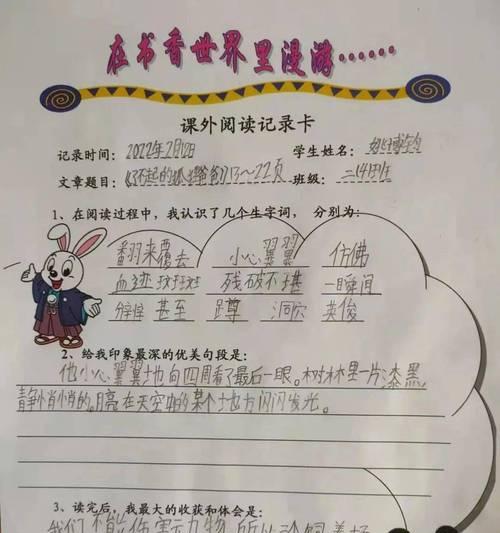 在书香世界里漫游……
课外阅读记录卡
记录时间：2022年2月12日 学生姓名：
文章题目：《了不起的狐狸爸爸》13～22页 班级：二(4)班
1、在阅读过程中，我认识了几个生字词，分别为：
翻来覆去 小心翼翼 仿佛
血迹斑斑 残破不堪 一瞬间
甚至 蹲 洞穴 英俊
2、给我印象最深的优美句段是：
他小心翼翼地向四周看了最后一眼。树林里一片漆黑，
静悄悄的。月亮在天空中的某个地方闪闪发光。
3、读完后，我最大的收获和体会是：
我们不能伤害动物，所以